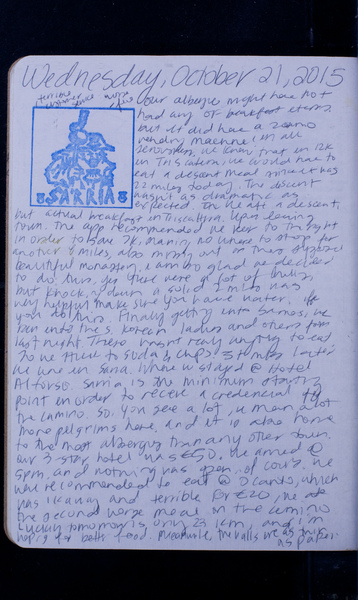 Wednesday, October 21, 2015
terrible customer service
Our albergue might have not
had any of breakfast items,
but it did have a
vending machine! In all
seriousness, we knew that in 12k
in Triscatera, we would have to
eat a descent meal since it was
22 miles today. The descent
wasn't as dramatic as
expected.
SARRIA
but actual breakfast in Upon leaving
town. The app recommended we veer to the right
in order to save 7k, many, no where to stop for
another 6 miles, also missing out on this
beautiful monastery. I am so glad we decided
to do this, yes there were a lot of hills,
but knock down a solid miles was
very helpful make sure you have water, if
you do this. Finally getting into Samos, we
ran into the S. Korean ladies and others from
last night. There wasn't really anything to eat
so we stuck to soda & chips 3 hours later
we were in Sarria. Where we stayed @ Hotel
Alfonso. Sarria is the minimum starting
point in order to receive a credencial
the camino. So, you see a lot, I mean a lot
more pilgrims here, and it is also home
to the most albergues than any other town.
Our 3-star hotel was €50, we arrived @
5pm, and nothing was open, of course. We
were recommended to eat @ which
was 1k away and terrible for €20, we ate
the second worse meal on the camino
Luckily tomorrow is only 23 km, and I'm
hoping for better food. Meanwhile, the walls are as thin
as paper.